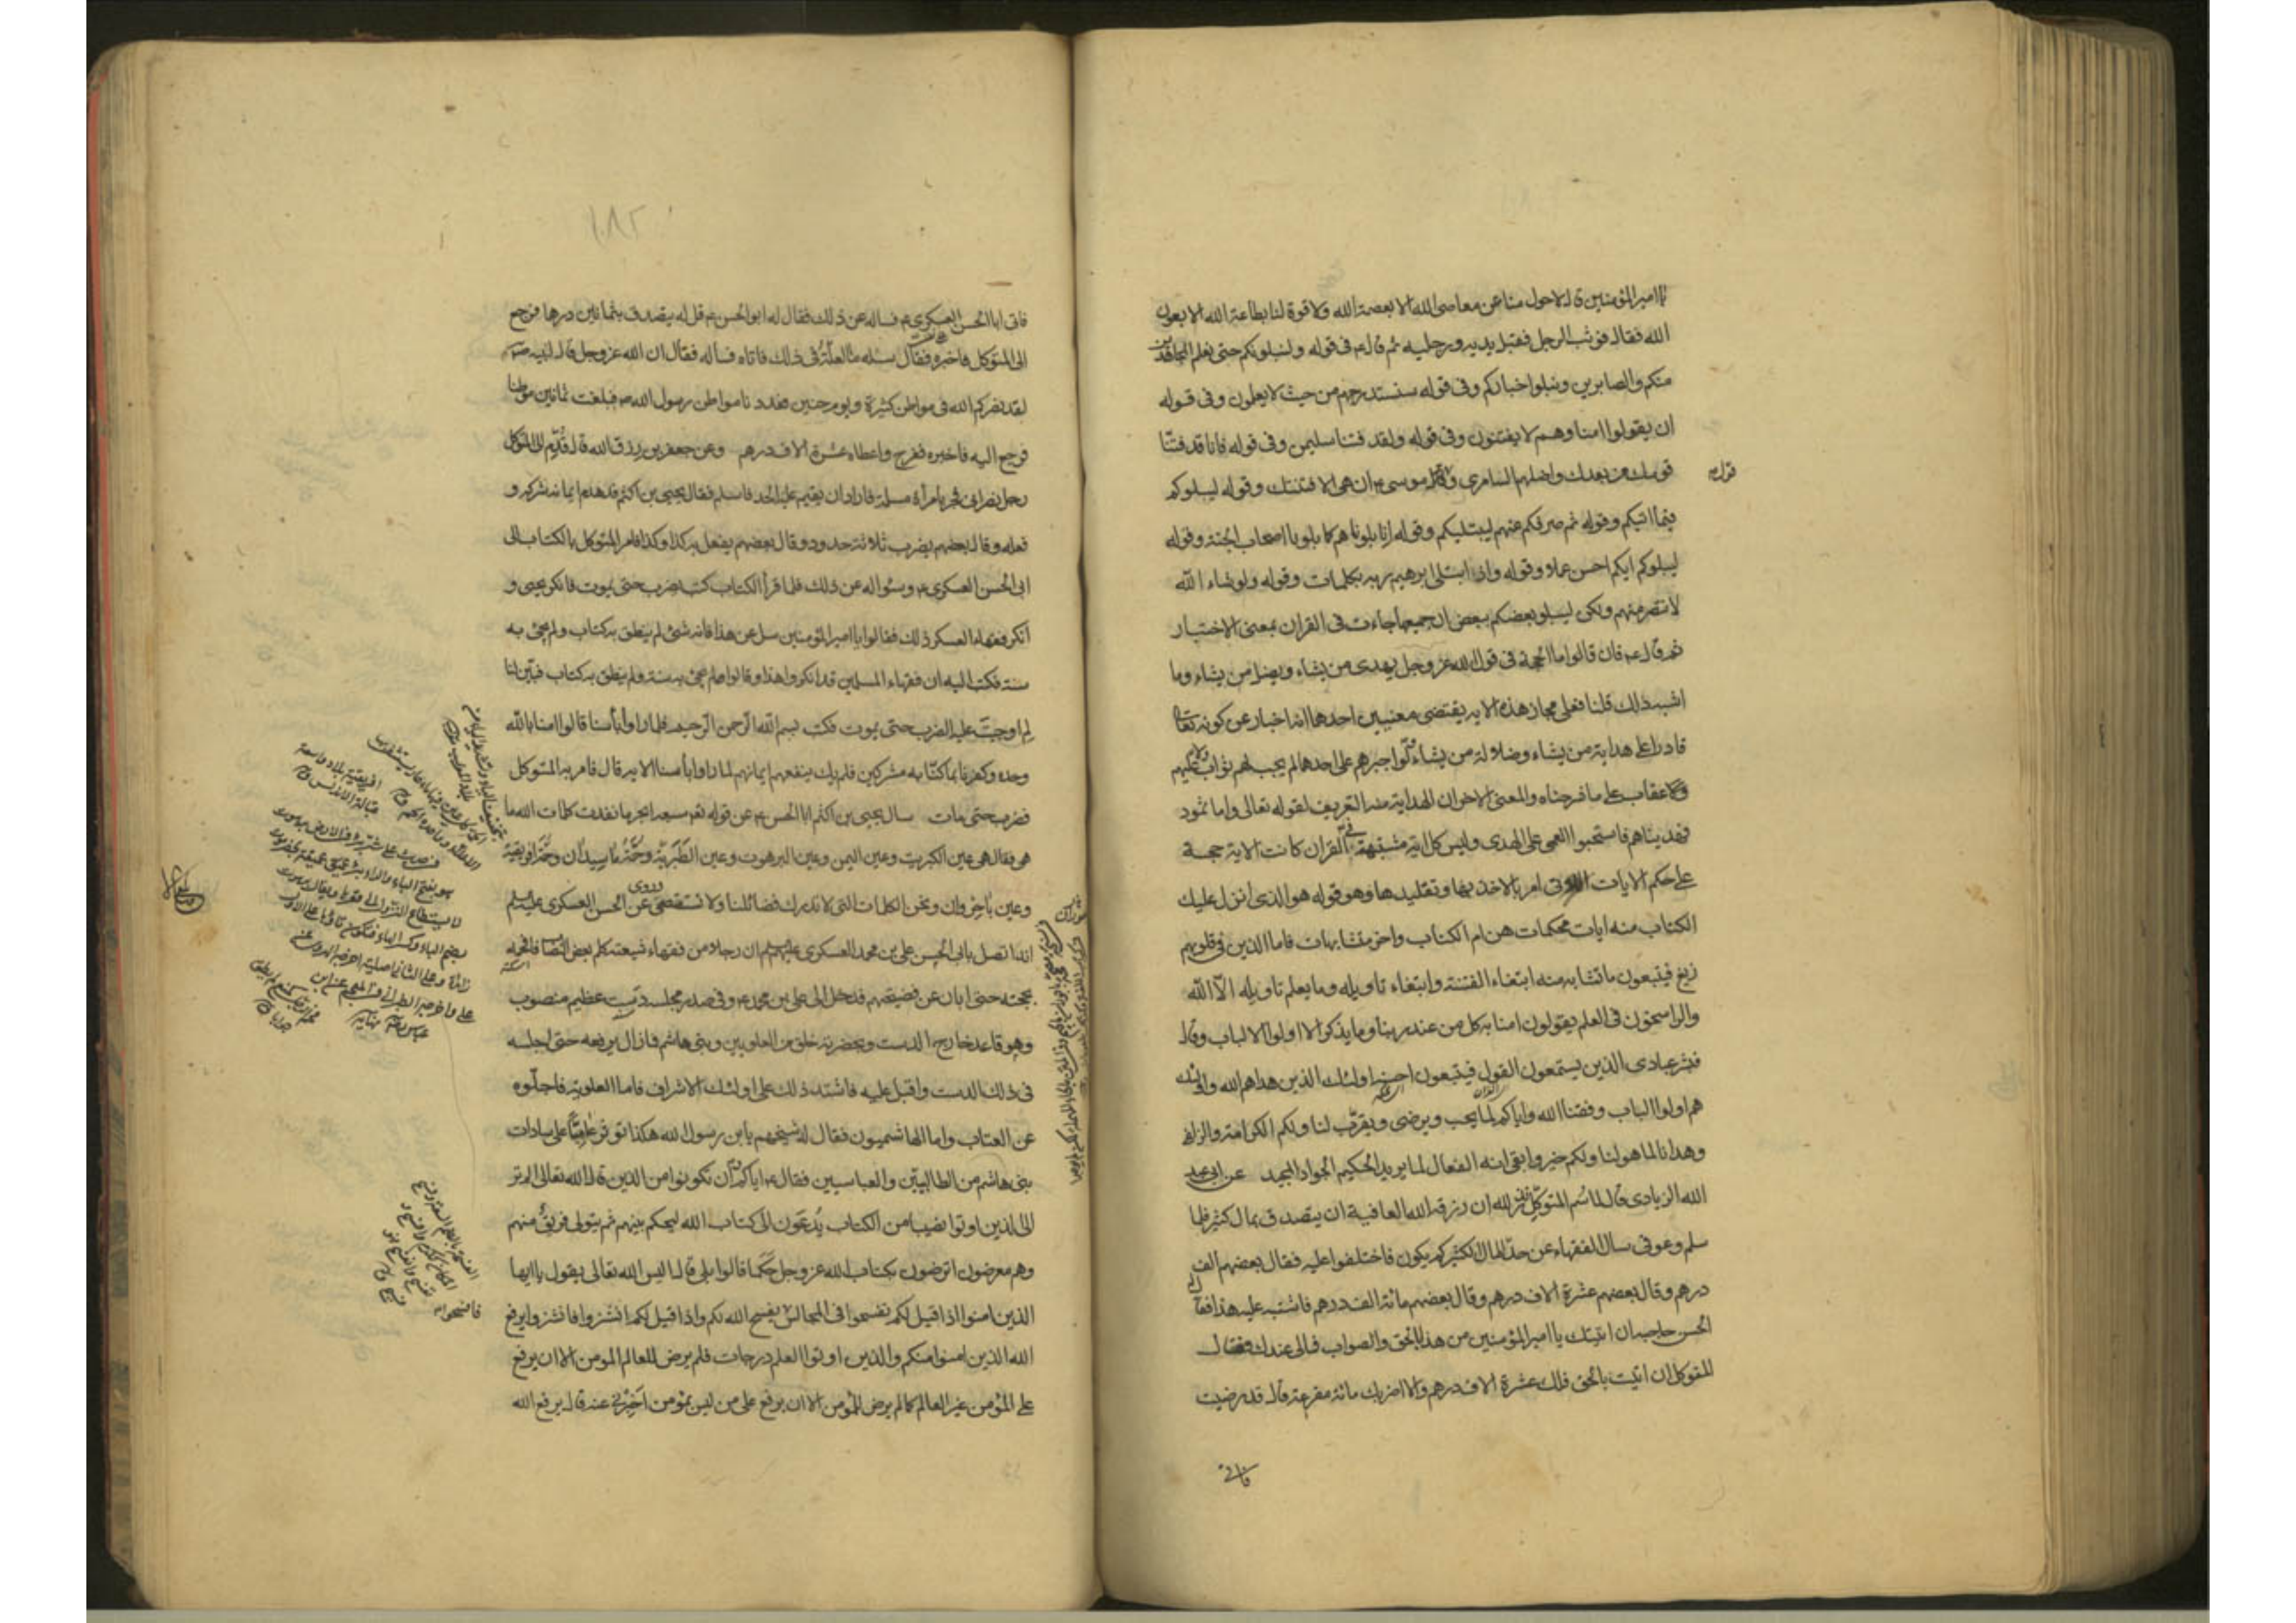 يا امير المؤمنين قال لا حول منا عن معاصي الله الا بعصمة الله ولا قوة لنا بطاعة الله الا بعون
الله فقال فوثب الرجل فقبل يديه ورجليه ثم قال ع في قوله ولنبلونكم حتى نعلم المجاهدين
منكم والصابرين ونبلوا اخباركم وفي قوله سنستدرجهم من حيث لا يعلمون وفي قوله
ان يقولوا امنا وهم لا يفتنون وفي قوله ولقد فتنا سليمن وفي قوله فانا قد فتنا
قومك من بعدك واضلهم السامري وقول موسى ع ان هي الا فتنتك وقوله ليبلوكم
فيما اتيكم وقوله ثم صرفكم عنهم ليبتليكم وقوله انا بلوناهم كما بلونا اصحاب الجنة وقوله
ليبلوكم ايكم احسن عملا وقوله واذ ابتلى ابرهيم ربه بكلمات وقوله ولو شاء الله
لانتصر منهم ولكن ليبلو بعضكم ببعض ان جميعها جاءت في القران بمعنى الاختبار
ثم قال ع فان قالوا ما الحجة في قول الله عز وجل يهدي من يشاء ويضل من يشاء وما
اشبه ذلك قلنا فعلى مجاز هذه الاية يقتضي معنيين احدهما انه اخبار عن كونه تعالى
قادرا على هداية من يشاء وضلالة من يشاء ولو اجبرهم على احدهما لم يجب لهم ثواب ولا عليهم
عقاب على ما شرحناه والمعنى الاخر ان الهداية منه التعريف لقوله تعالى واما ثمود
فهديناهم فاستحبوا العمى على الهدى وليس كل اية مشتبهة في القران كانت الاية حجة
على حكم الايات اللاتي امر بالاخذ بها وتقليدها وهو قوله هو الذي انزل عليك
الكتاب منه ايات محكمات هن ام الكتاب واخر متشابهات فاما الذين في قلوبهم
زيغ فيتبعون ما تشابه منه ابتغاء الفتنة وابتغاء تاويله وما يعلم تاويله الا الله
والراسخون في العلم يقولون امنا به كل من عند ربنا وما يذكر الا اولوا الالباب وقال
فبشر عبادي الذين يستمعون القول فيتبعون احسنه اولئك الذين هداهم الله واولئك
هم اولوا الالباب وفقنا الله واياكم لما يحب ويرضى ويقرب لنا ولكم الكرامة والزلفى
وهدانا لما هو لنا ولكم خير وابقى انه الفعال لما يريد الحكيم الجواد المجيد عن ابي عبد
الله الزيادي قال لما سم المتوكل نذر لله ان رزقه الله العافية ان يتصدق بمال كثير فلما
سلم وعوفي سال الفقهاء عن حد المال الكثير كم يكون فاختلفوا عليه فقال بعضهم الف
درهم وقال بعضهم عشرة الاف درهم وقال بعضهم مائة الف درهم فاشتبه عليه هذا فقال
الحسن حاجبه ان اتيتك يا امير المؤمنين من هذا بالحق والصواب فمالي عندك فقال
المتوكل ان اتيت بالحق فلك عشرة الاف درهم والا اضربك مائة مقرعة قال قد رضيت
فاتى
١٨٢
فاتى ابا الحسن العسكري ع فساله عن ذلك فقال له ابو الحسن ع قل له يتصدق بثمانين درهما فرجع
الى المتوكل فاخبره فقال سله ما العلة في ذلك فاتاه فساله فقال ان الله عز وجل قال لنبيه ص
لقد نصركم الله في مواطن كثيرة ويوم حنين فعددنا مواطن رسول الله ص فبلغت ثمانين موطنا
فرجع اليه فاخبره ففرح واعطاه عشرة الاف درهم وعن جعفر بن رزق الله قال قدم الى المتوكل
رجل نصراني فجر بامرأة مسلمة فاراد ان يقيم عليه الحد فاسلم فقال يحيى بن اكثم قد هدم ايمانه شركه و
فعله وقال بعضهم يضرب ثلاثة حدود وقال بعضهم يفعل به كذا وكذا فامر المتوكل بالكتاب الى
ابي الحسن العسكري ع وسؤاله عن ذلك فلما قرأ الكتاب كتب يضرب حتى يموت فانكر يحيى و
انكر فقهاء العسكر ذلك فقالوا يا امير المؤمنين سل عن هذا فانه شئ لم ينطق به كتاب ولم يجئ به
سنة فكتب اليه ان فقهاء المسلمين قد انكروا هذا وقالوا لم يجئ به سنة ولم ينطق به كتاب فبين لنا
لم اوجبت عليه الضرب حتى يموت فكتب بسم الله الرحمن الرحيم فلما راوا بأسنا قالوا امنا بالله
وحده وكفرنا بما كنا به مشركين فلم يك ينفعهم ايمانهم لما راوا بأسنا الاية قال فامر به المتوكل
فضرب حتى مات سال يحيى بن اكثم ابا الحسن ع عن قوله تع سبعة ابحر ما نفدت كلمات الله ما
هي فقال هي عين الكبريت وعين اليمن وعين البرهوت وعين الطبرية وحمة ماسيدان وحمة افريقية
وعين باجروان ونحن الكلمات التي لا تدرك فضائلنا ولا تستقصى وروي عن الحسن العسكري عليه السلم
انه اتصل بابي الحسن علي بن محمد العسكري عليهم السلم ان رجلا من فقهاء شيعته كلم بعض النصاب فافحمه
بحجته حتى ابان عن فضيحته فدخل الى علي بن محمد ع وفي صدر مجلسه دست عظيم منصوب
وهو قاعد خارج الدست وبحضرته خلق من العلويين وبني هاشم فما زال يرفعه حتى اجلسه
في ذلك الدست واقبل عليه فاشتد ذلك على اولئك الاشراف فاما العلوية فاجلوه
عن العتاب واما الهاشميون فقال له شيخهم يا بن رسول الله هكذا تؤثر عاميا على سادات
بني هاشم من الطالبيين والعباسيين فقال ع اياكم وان تكونوا من الذين قال الله تعالى الم تر
الى الذين اوتوا نصيبا من الكتاب يدعون الى كتاب الله ليحكم بينهم ثم يتولى فريق منهم
وهم معرضون اترضون بكتاب الله عز وجل حكما قالوا بلى قال اليس الله تعالى يقول يا ايها
الذين امنوا اذا قيل لكم تفسحوا في المجالس فافسحوا يفسح الله لكم واذا قيل لكم انشزوا فانشزوا يرفع
الله الذين امنوا منكم والذين اوتوا العلم درجات فلم يرض للعالم المؤمن الا ان يرفع
على المؤمن غير العالم كما لم يرض للمؤمن الا ان يرفع على من ليس بمؤمن اخبروني عنه قال يرفع الله